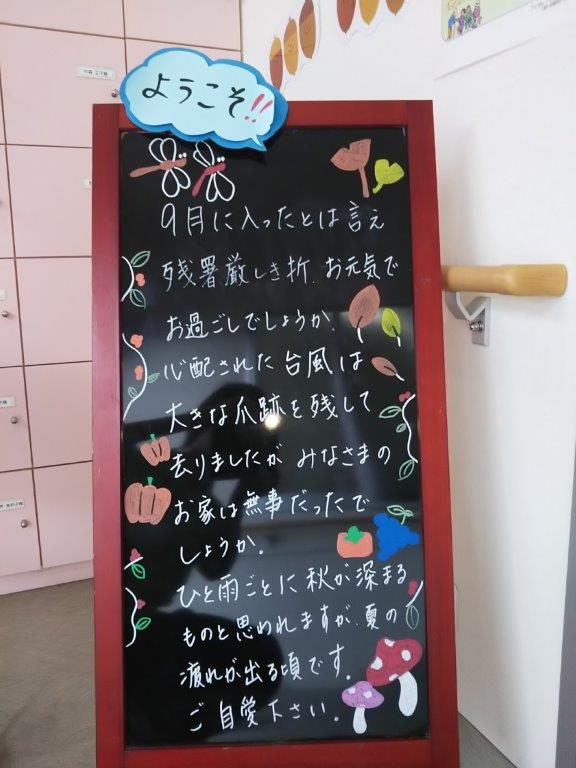 ようこそ!!
9月に入ったとは言え
残署厳しき折、お元気で
お過ごしでしょうか。
心配された台風は
大きな爪跡を残して
去りましたが みなさまの
お家は無事だったで
しょうか。
ひと雨ごとに秋が深まる
ものと思われますが、夏の
疲れが出る頃です。
ご自愛下さい。